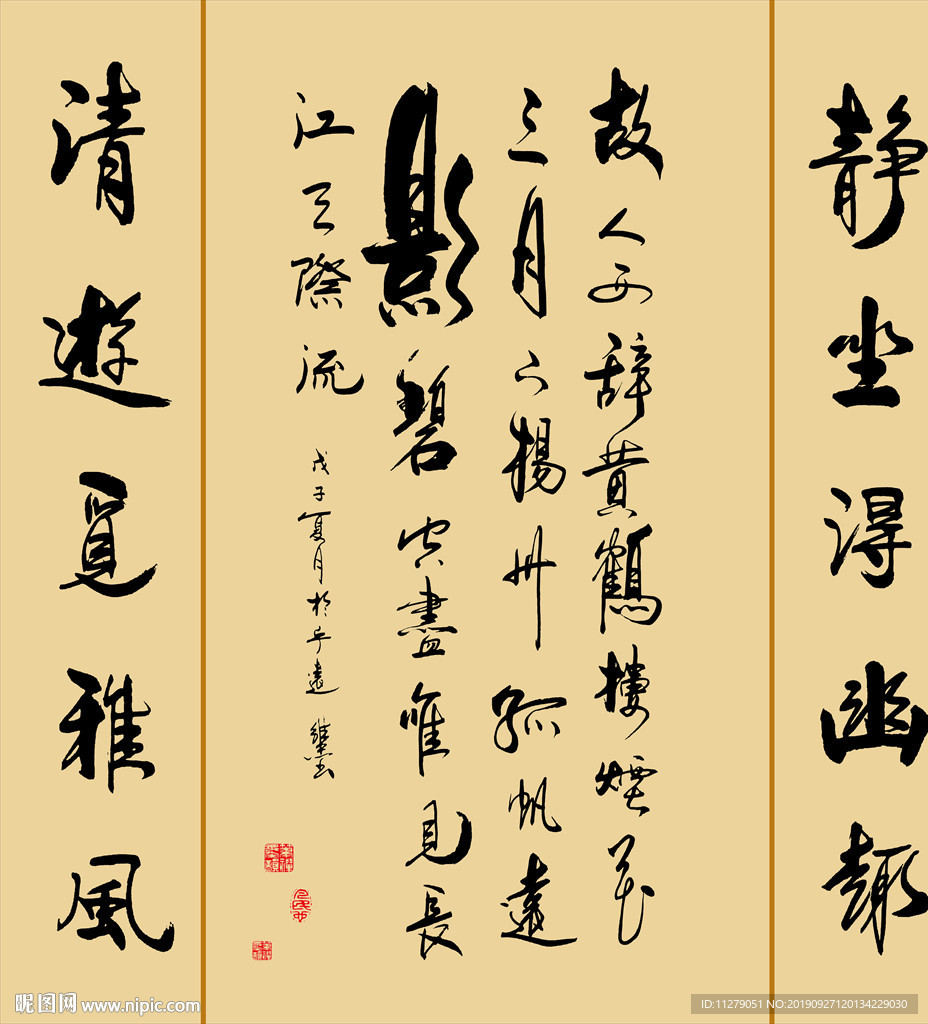 静坐得幽趣
故人西辞黄鹤楼煙花
三月下揚州孤帆遠
影碧空盡唯見長
江天際流
戊子夏月於平遠
清遊覓雅風
昵图网 www.nipic.com
ID:11279051 NO:20190927120134229030